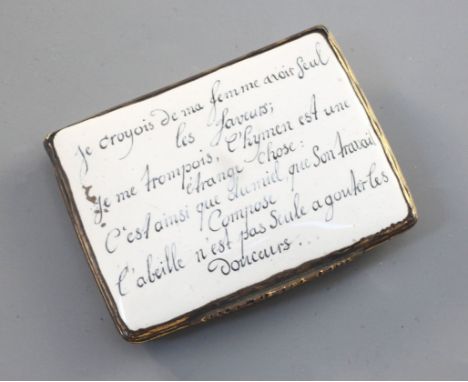 je croyois de ma femme avoir seul
les faveurs;
je me trompois, l'hymen est une
étrange chose:
C'est ainsi que du miel que Son travail
Compose
l'abeille n'est pas Seule a gouter les
Douceurs...